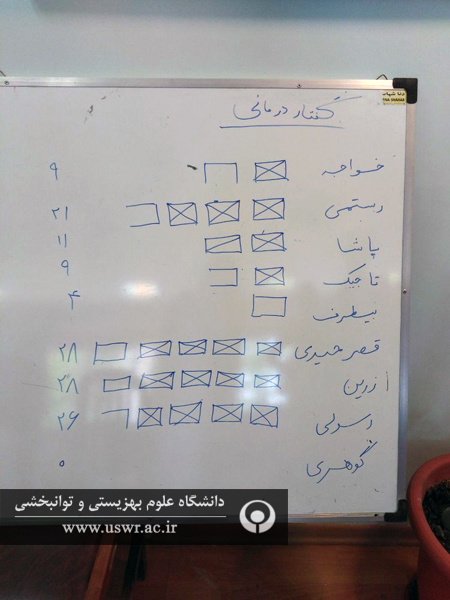 دنا شهاب
گفتار درمانی
خواجه ۹
رستمی ۲۱
پاشا ۱۱
تاجیک ۹
بیطرف ۴
قصر حمیدی ۲۸
زرین ۲۸
رسولی ۲۶
گوهری ۰
دانشگاه علوم بهزیستی و توانبخشی
www.uswr.ac.ir